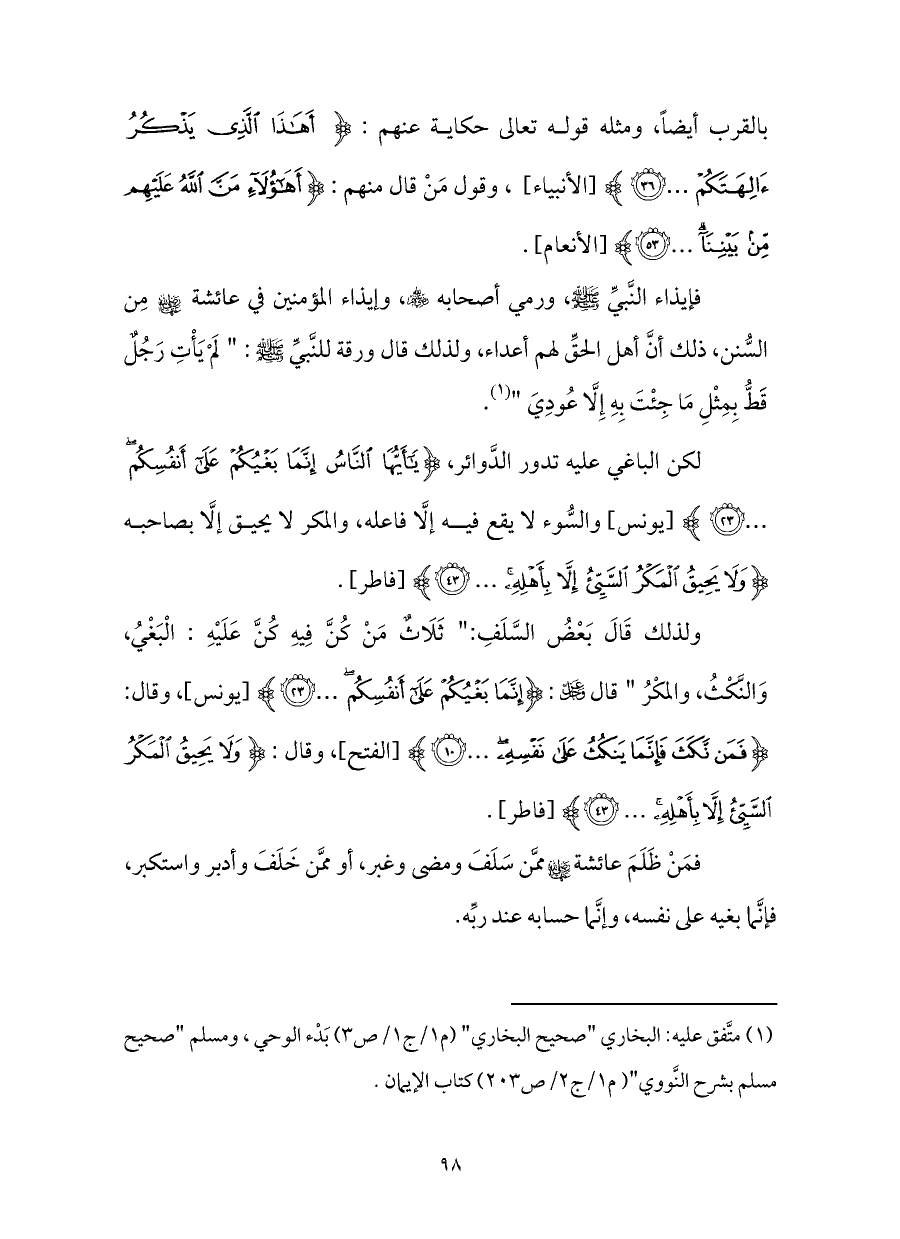 بالقرب أيضاً، ومثله قولـه تعالى حكايـة عنهم : ﴿ أَهَٰذَا ٱلَّذِى يَذْكُرُ
ءَالِهَتَكُمْ ...٣٦ ﴾ [الأنبياء] ، وقول مَنْ قال منهم : ﴿ أَهَٰٓؤُلَآءِ مَنَّ ٱللَّهُ عَلَيْهِم
مِّنۢ بَيْنِنَآ ۗ ...٥٣ ﴾ [الأنعام] .
فإيذاء النَّبيِّ ﷺ، ورمي أصحابه ﷺ، وإيذاء المؤمنين في عائشة رضي الله عنها مِن
السُّنن، ذلك أنَّ أهل الحقِّ لهم أعداء، ولذلك قال ورقة للنَّبيِّ ﷺ : " لَمْ يَأْتِ رَجُلٌ
قَطُّ بِمِثْلِ مَا جِئْتَ بِهِ إِلَّا عُودِيَ "(١).
لكن الباغي عليه تدور الدَّوائر، ﴿ يَٰٓأَيُّهَا ٱلنَّاسُ إِنَّمَا بَغْيُكُمْ عَلَىٰٓ أَنفُسِكُم ۖ
...٢٣ ﴾ [يونس] والسُّوء لا يقع فيـــه إلَّا فاعله، والمكر لا يحيـق إلَّا بصاحبـه
﴿ وَلَا يَحِيقُ ٱلْمَكْرُ ٱلسَّيِّئُ إِلَّا بِأَهْلِهِۦ ۚ ... ٤٣ ﴾ [فاطر] .
ولذلك قَالَ بَعْضُ السَّلَفِ:" ثَلَاثٌ مَنْ كُنَّ فِيهِ كُنَّ عَلَيْهِ : الْبَغْيُ،
وَالنَّكْثُ، والمكْرُ " قال ﷻ : ﴿ إِنَّمَا بَغْيُكُمْ عَلَىٰٓ أَنفُسِكُم ۖ ...٢٣ ﴾ [يونس]، وقال:
﴿ فَمَن نَّكَثَ فَإِنَّمَا يَنكُثُ عَلَىٰ نَفْسِهِۦ ۖ ...١٠ ﴾ [الفتح]، وقال : ﴿ وَلَا يَحِيقُ ٱلْمَكْرُ
ٱلسَّيِّئُ إِلَّا بِأَهْلِهِۦ ۚ ... ٤٣ ﴾ [فاطر] .
فمَنْ ظَلَمَ عائشة رضي الله عنها ممَّن سَلَفَ ومضى وغبر، أو ممَّن خَلَفَ وأدبر واستكبر،
فإنَّما بغيه على نفسه، وإنَّما حسابه عند ربِّه.
(١) متَّفق عليه: البخاري "صحيح البخاري" (م١/ ج١/ ص٣) بَدْء الوحي ، ومسلم "صحيح
مسلم بشرح النَّووي"( م١/ ج٢/ ص٢٠٣) كتاب الإيمان .
٩٨